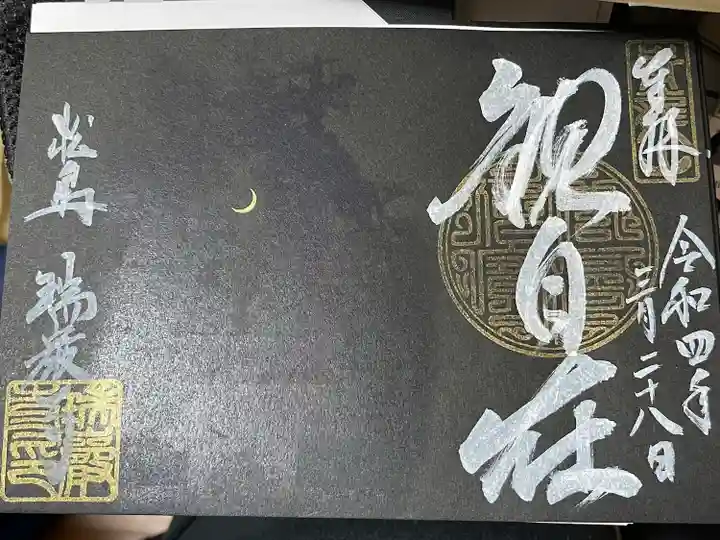 奉拝
令和四年
二月二十八日
観自在
松島
瑞巌寺